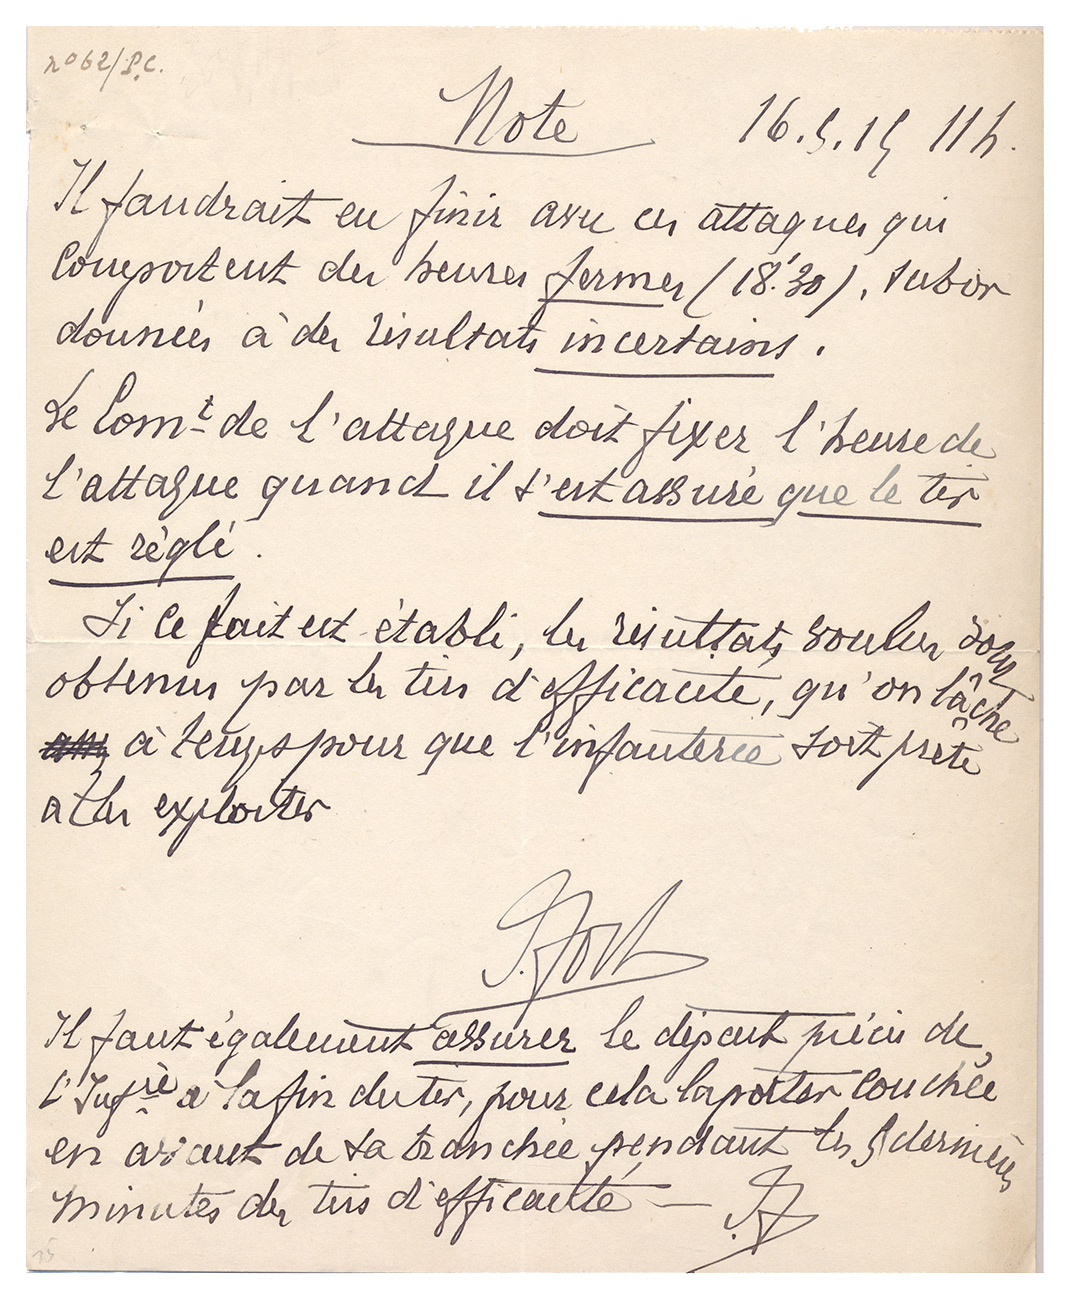 n° 62/P.C.
Note 16.5.15 11 h.
Il faudrait en finir avec ces attaques qui
comportent des heures fermes (18.30), subor
données à des résultats incertains.
Le Comt de l'attaque doit fixer l'heure de
l'attaque quand il s'est assuré que le tir
est réglé.
Si ce fait est établi, les résultats voulus sont
obtenus par les tirs d'efficacité, qu'on lâche
à temps pour que l'infanterie soit prête
à les exploiter
F. Foch
Il faut également assurer le départ précis de
l'Infrie à la fin du tir, pour cela la porter couchée
en avant de sa tranchée pendant les 5 dernières
minutes des tirs d'efficacité —